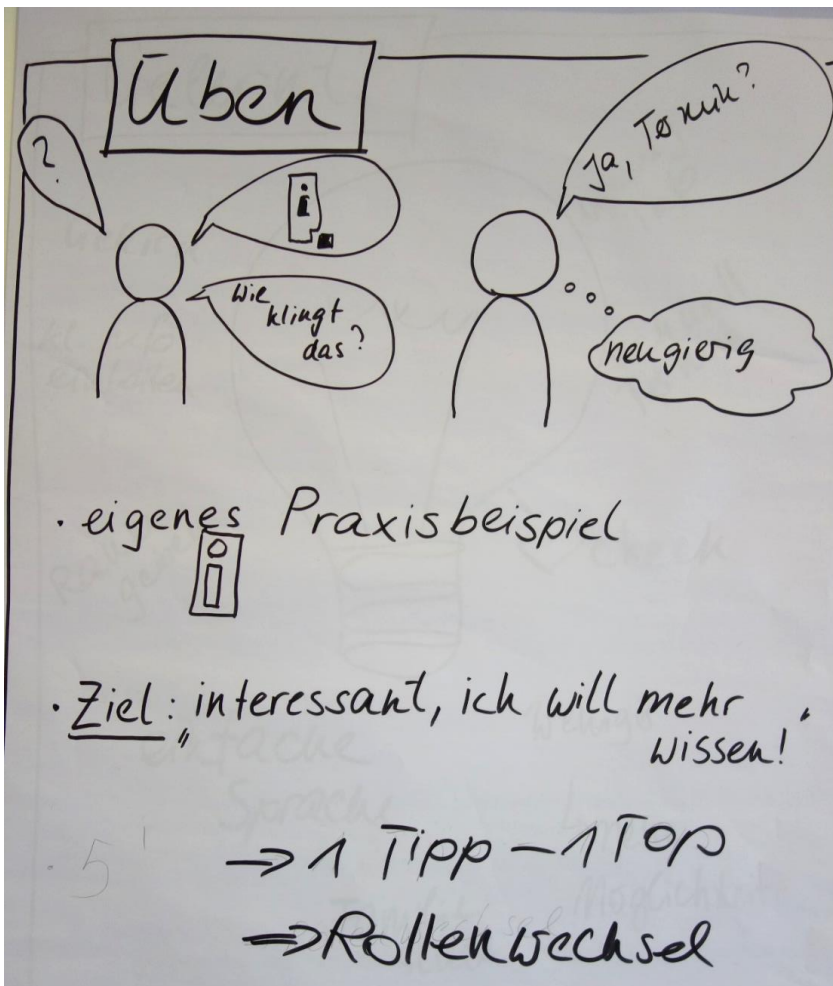 Üben
?
i
Ja, Termin?
Wie
klingt
das?
neugierig
· eigenes Praxisbeispiel
i
· Ziel: „interessant, ich will mehr
wissen!"
· 5'
→ 1 Tipp – 1 Top
⇒ Rollenwechsel